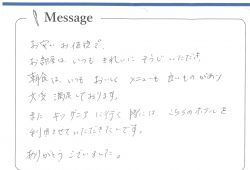 Message
お安い お値段で、
お部屋は いつも きれいに そうじ いただき
朝食は、いつも おいしく メニューも 良いものがあり
大変 満足しております。
また 行く 際には、こちらのホテルを
利用させていただきたいです。
ありがとう ございました。